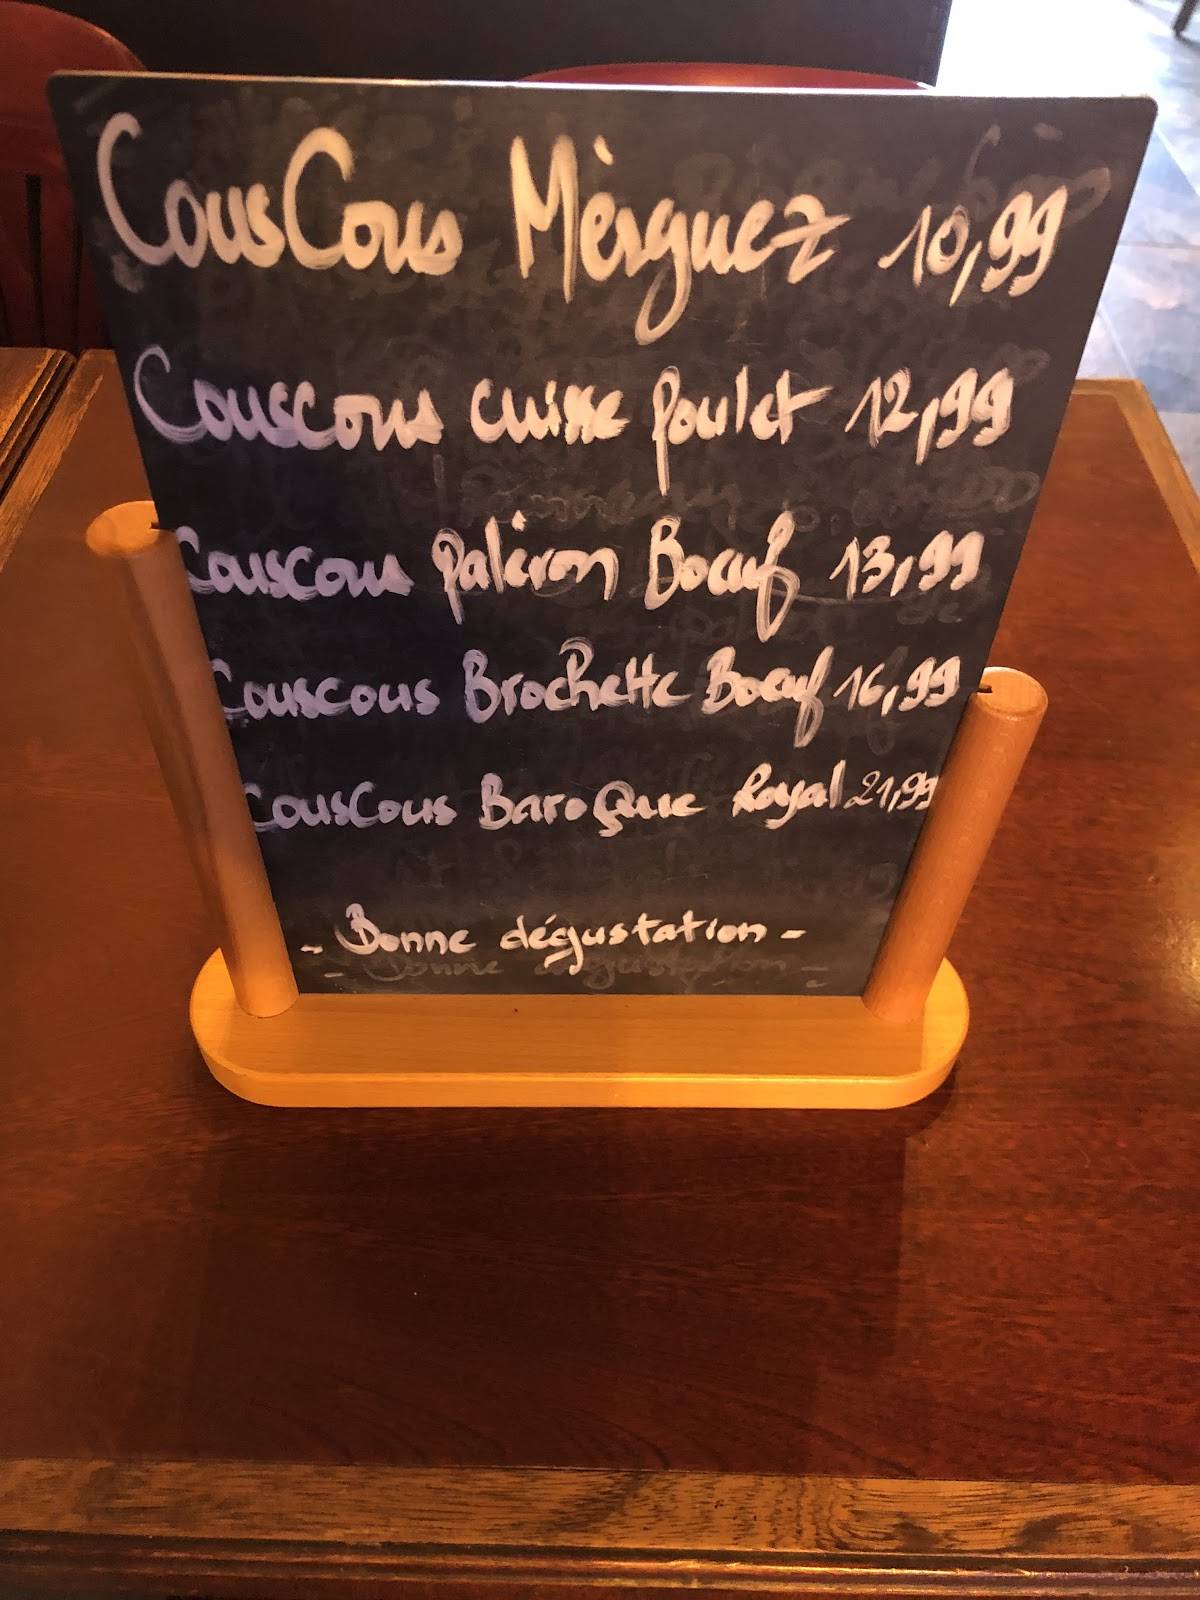 CousCous Mèrguez 10,99
Couscous cuisse poulet 12,99
Couscous paleron Boeuf 13,99
Couscous Brochette Boeuf 16,99
CousCous BaroQue Royal 21,99
- Bonne dégustation -